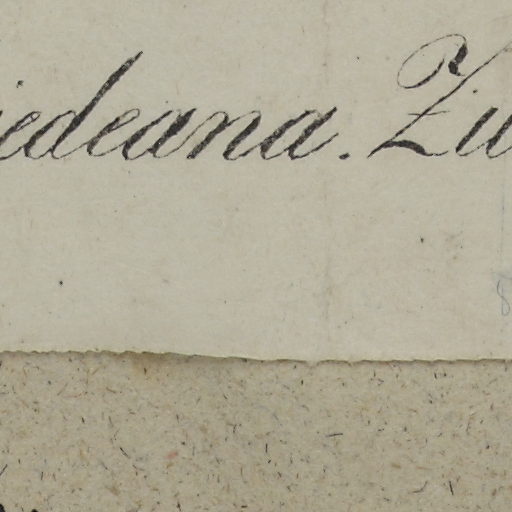 iedeana. Zu